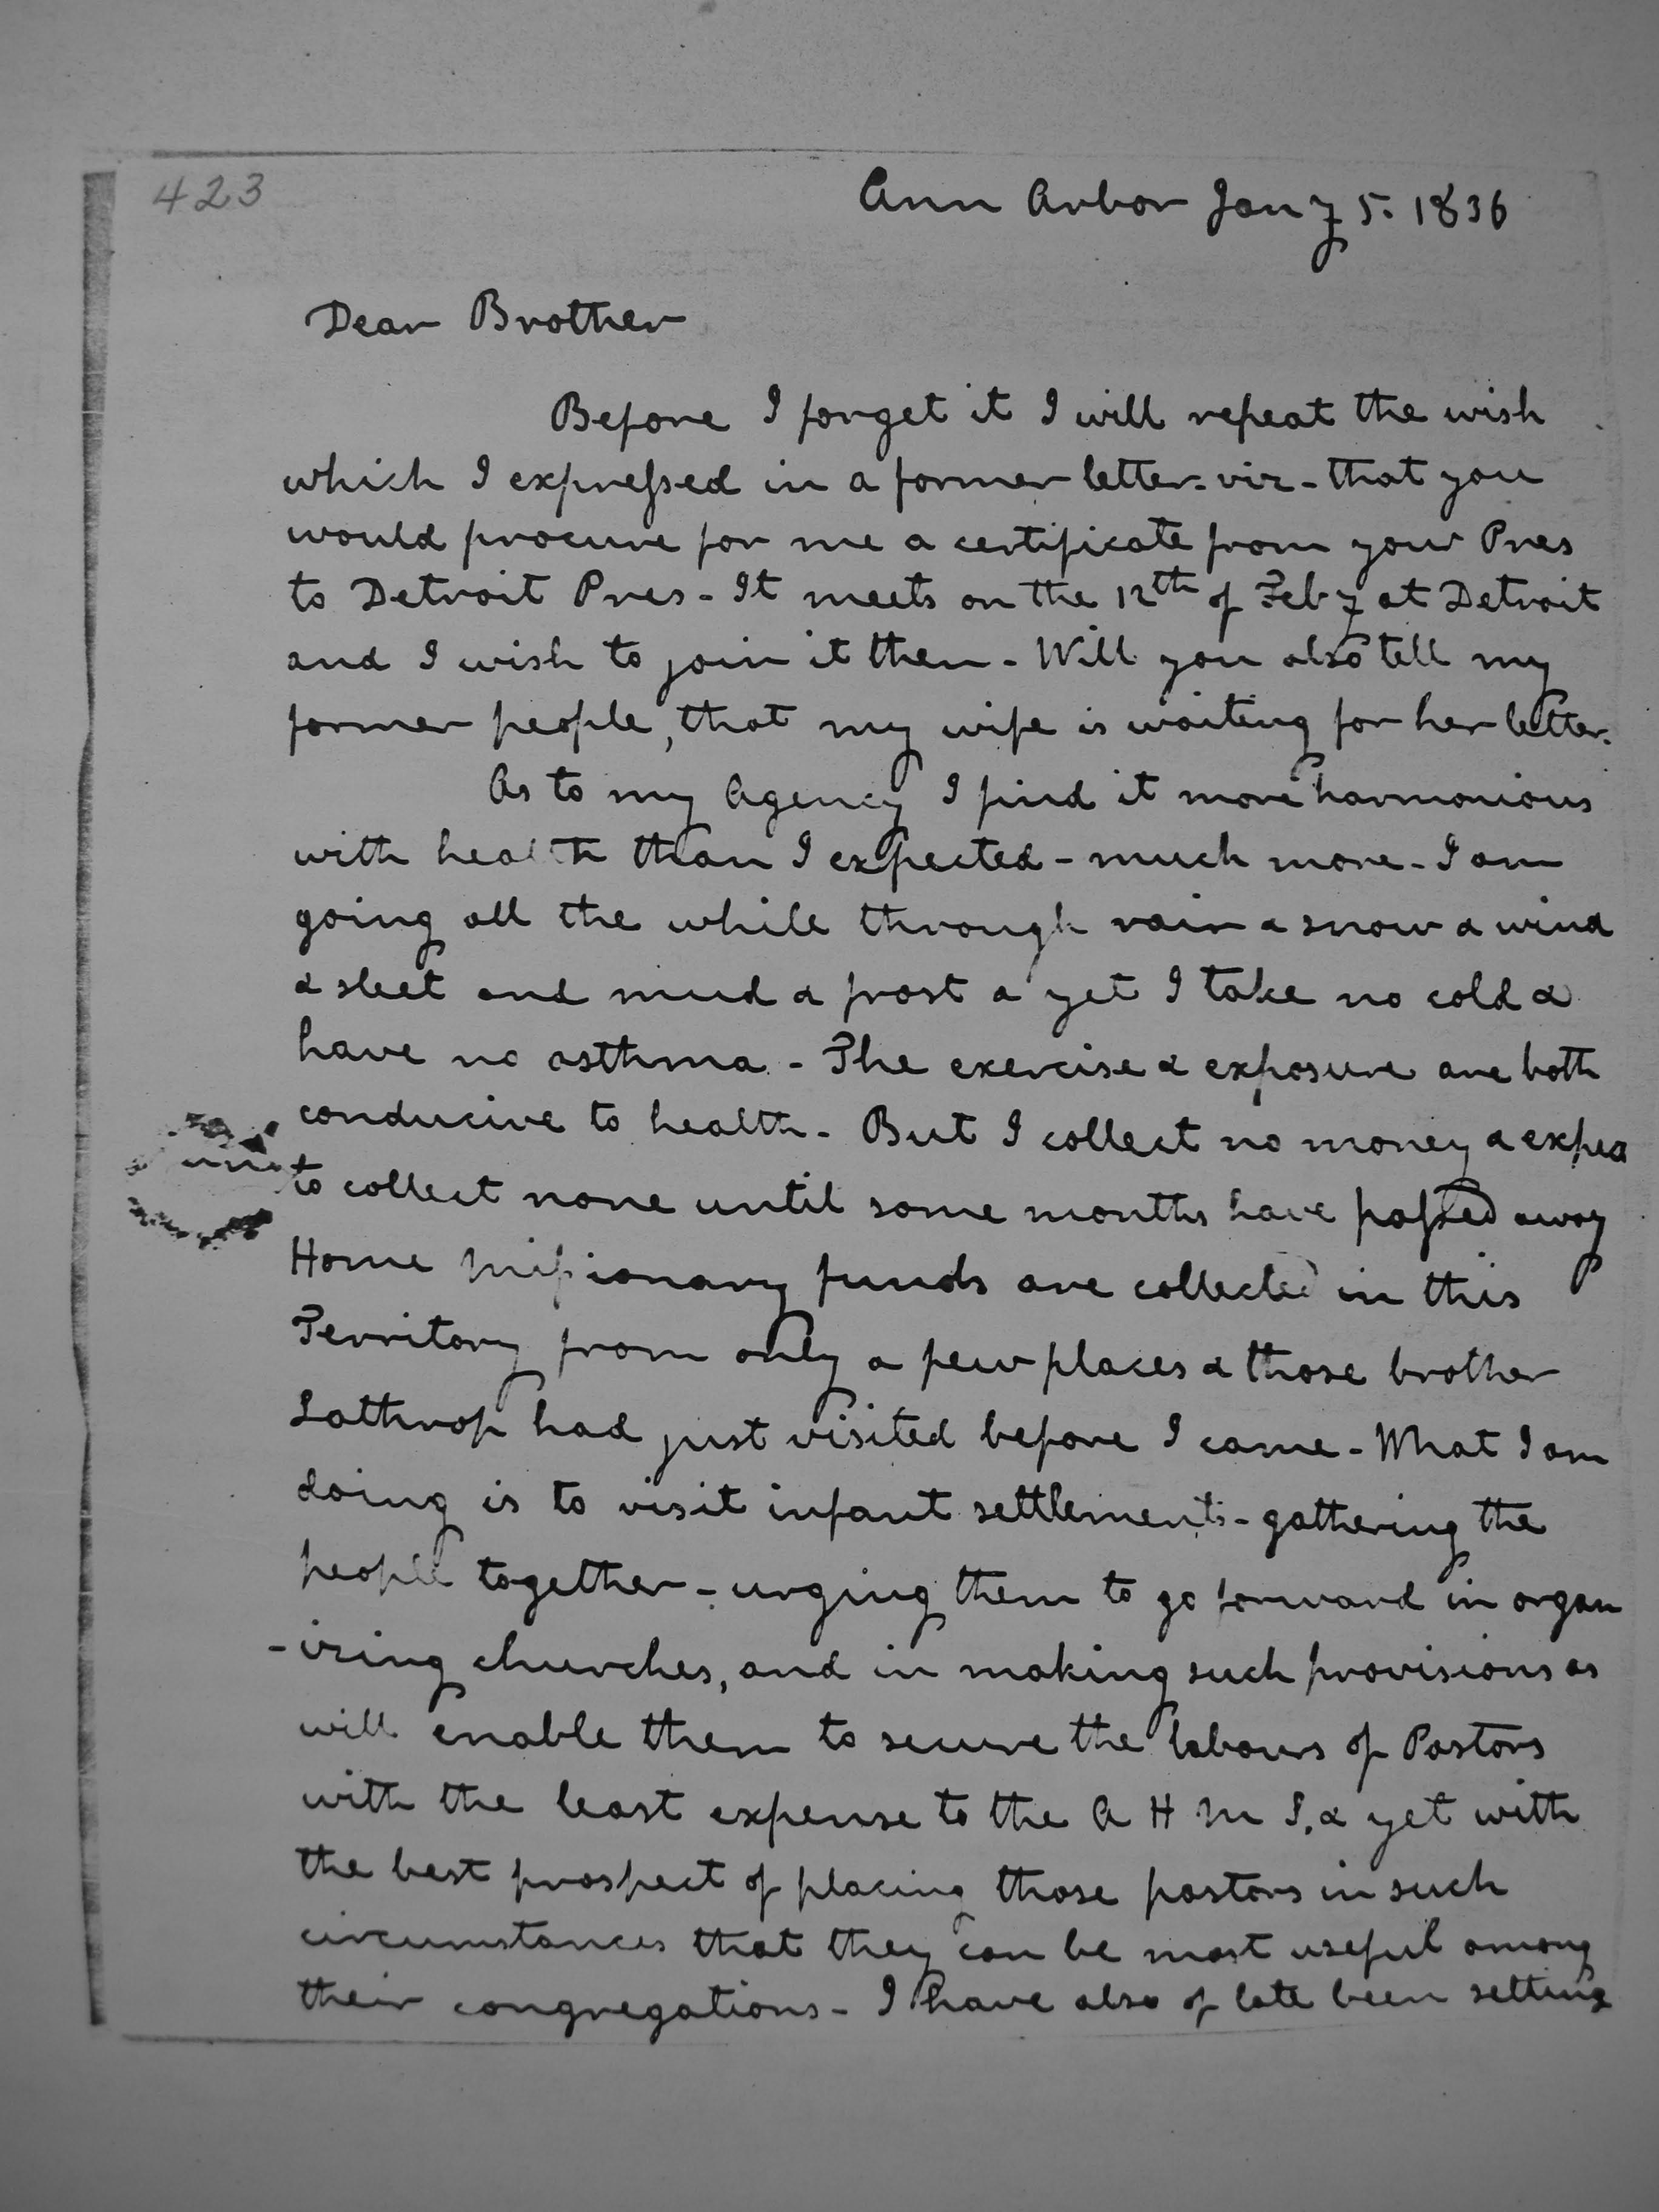 423
Ann Arbor Jany 5. 1836
Dear Brother
Before I forget it I will repeat the wish
which I expressed in a former letter - viz - that you
would procure for me a certificate from your Pres
to Detroit Pres - It meets on the 12th of Feby at Detroit
and I wish to join it then - Will you also tell my
former people, that my wife is waiting for her letter.
As to my Agency I find it more harmonious
with health than I expected - much more - I am
going all the while through rain & snow & wind
& sleet and mud & frost & yet I take no cold &
have no asthma - The exercise & exposure are both
conducive to health - But I collect no money & expect
to collect none until some months have passed away
Home Missionary funds are collected in this
Territory from only a few places & those brother
Lathrop had just visited before I came - What I am
doing is to visit infant settlements - gathering the
people together - urging them to go forward in organ
-izing churches, and in making such provisions as
will enable them to secure the labours of Pastors
with the least expense to the A H M S, & yet with
the best prospect of placing those pastors in such
circumstances that they can be most useful among
their congregations - I have also of late been setting